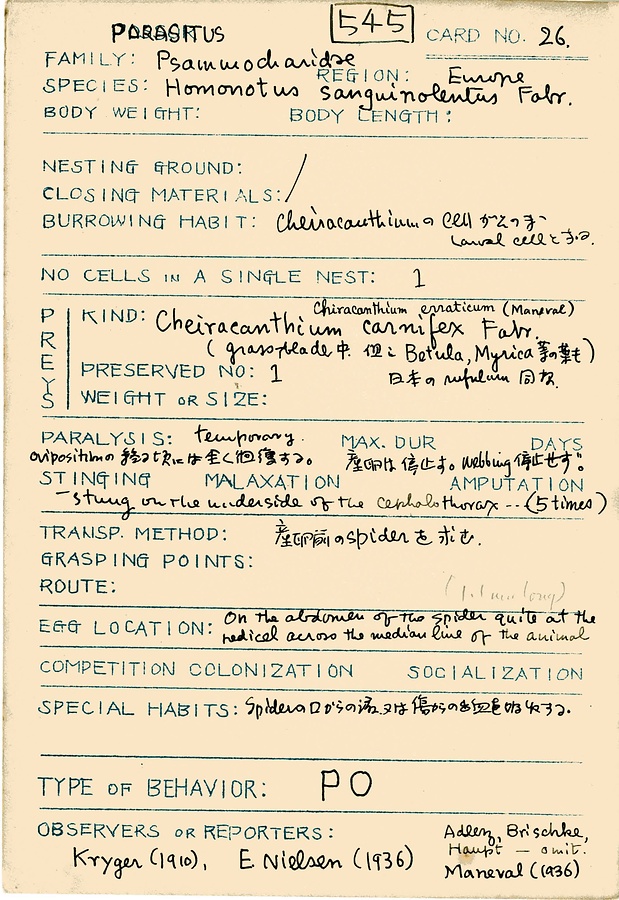 PARASITUS
545
CARD NO. 26.
FAMILY: Psammocharidae
REGION: Europe
SPECIES: Homonotus sanguinolentus Fabr.
BODY WEIGHT: BODY LENGTH:
NESTING GROUND: /
CLOSING MATERIALS:
BURROWING HABIT: Cheiracanthiumの cell がそのまゝ
larval cellとなる.
NO CELLS IN A SINGLE NEST: 1
PREYS
Chiracanthium erraticum (Maneval)
KIND: Cheiracanthium carnifex Fabr.
(grass-blade中. 但し Betula, Myrica 等の葉も)
PRESERVED NO: 1 日本の rufulum 同な.
WEIGHT OR SIZE:
PARALYSIS: temporary. MAX. DUR DAYS
ovipositionの終る頃には全く恢復する。 産卵は停止す。webbing 停止せず。
STINGING MALAXATION AMPUTATION
stung on the underside of the cephalothorax -- (5 times)
TRANSP. METHOD: 産卵前のspiderを求む.
GRASPING POINTS:
ROUTE:
EGG LOCATION: On the abdomen of the spider quite at the
pedicel across the median line of the animal
COMPETITION COLONIZATION SOCIALIZATION
SPECIAL HABITS: Spiderの口からの液又は傷からの出血を吸収する.
TYPE OF BEHAVIOR: PO
OBSERVERS OR REPORTERS: Adlerz, Brischke,
Haupt — omit.
Kryger (1910), E Nielsen (1936) Maneval (1936)